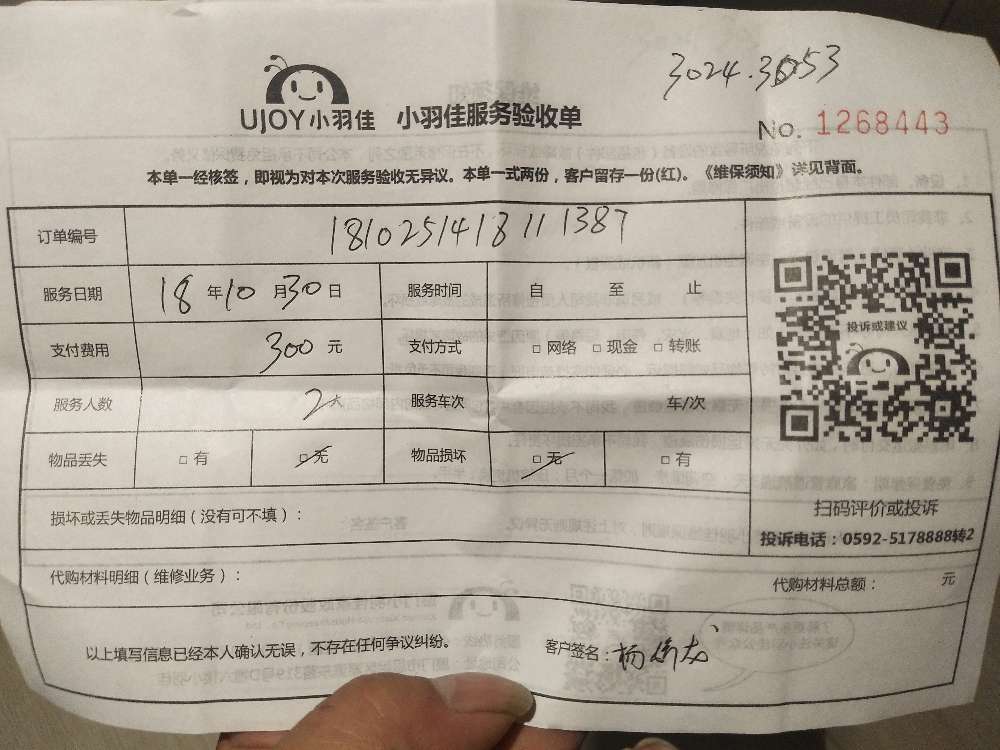 3024.3053
UJOY小羽佳 小羽佳服务验收单
No. 1268443
本单一经核签，即视为对本次服务验收无异议。本单一式两份，客户留存一份(红)。《维保须知》详见背面。
订单编号 1810251418111387
服务日期 18年10月30日 服务时间 自 至 止
支付费用 300元 支付方式 □ 网络 □ 现金 □ 转账
服务人数 2人 服务车次 车/次
物品丢失 □ 有 □ 无 物品损坏 □ 无 □ 有
投诉或建议
扫码评价或投诉
投诉电话：0592-5178888转2
损坏或丢失物品明细（没有可不填）：
代购材料明细（维修业务）：
代购材料总额： 元
以上填写信息已经本人确认无误，不存在任何争议纠纷。
客户签名：杨